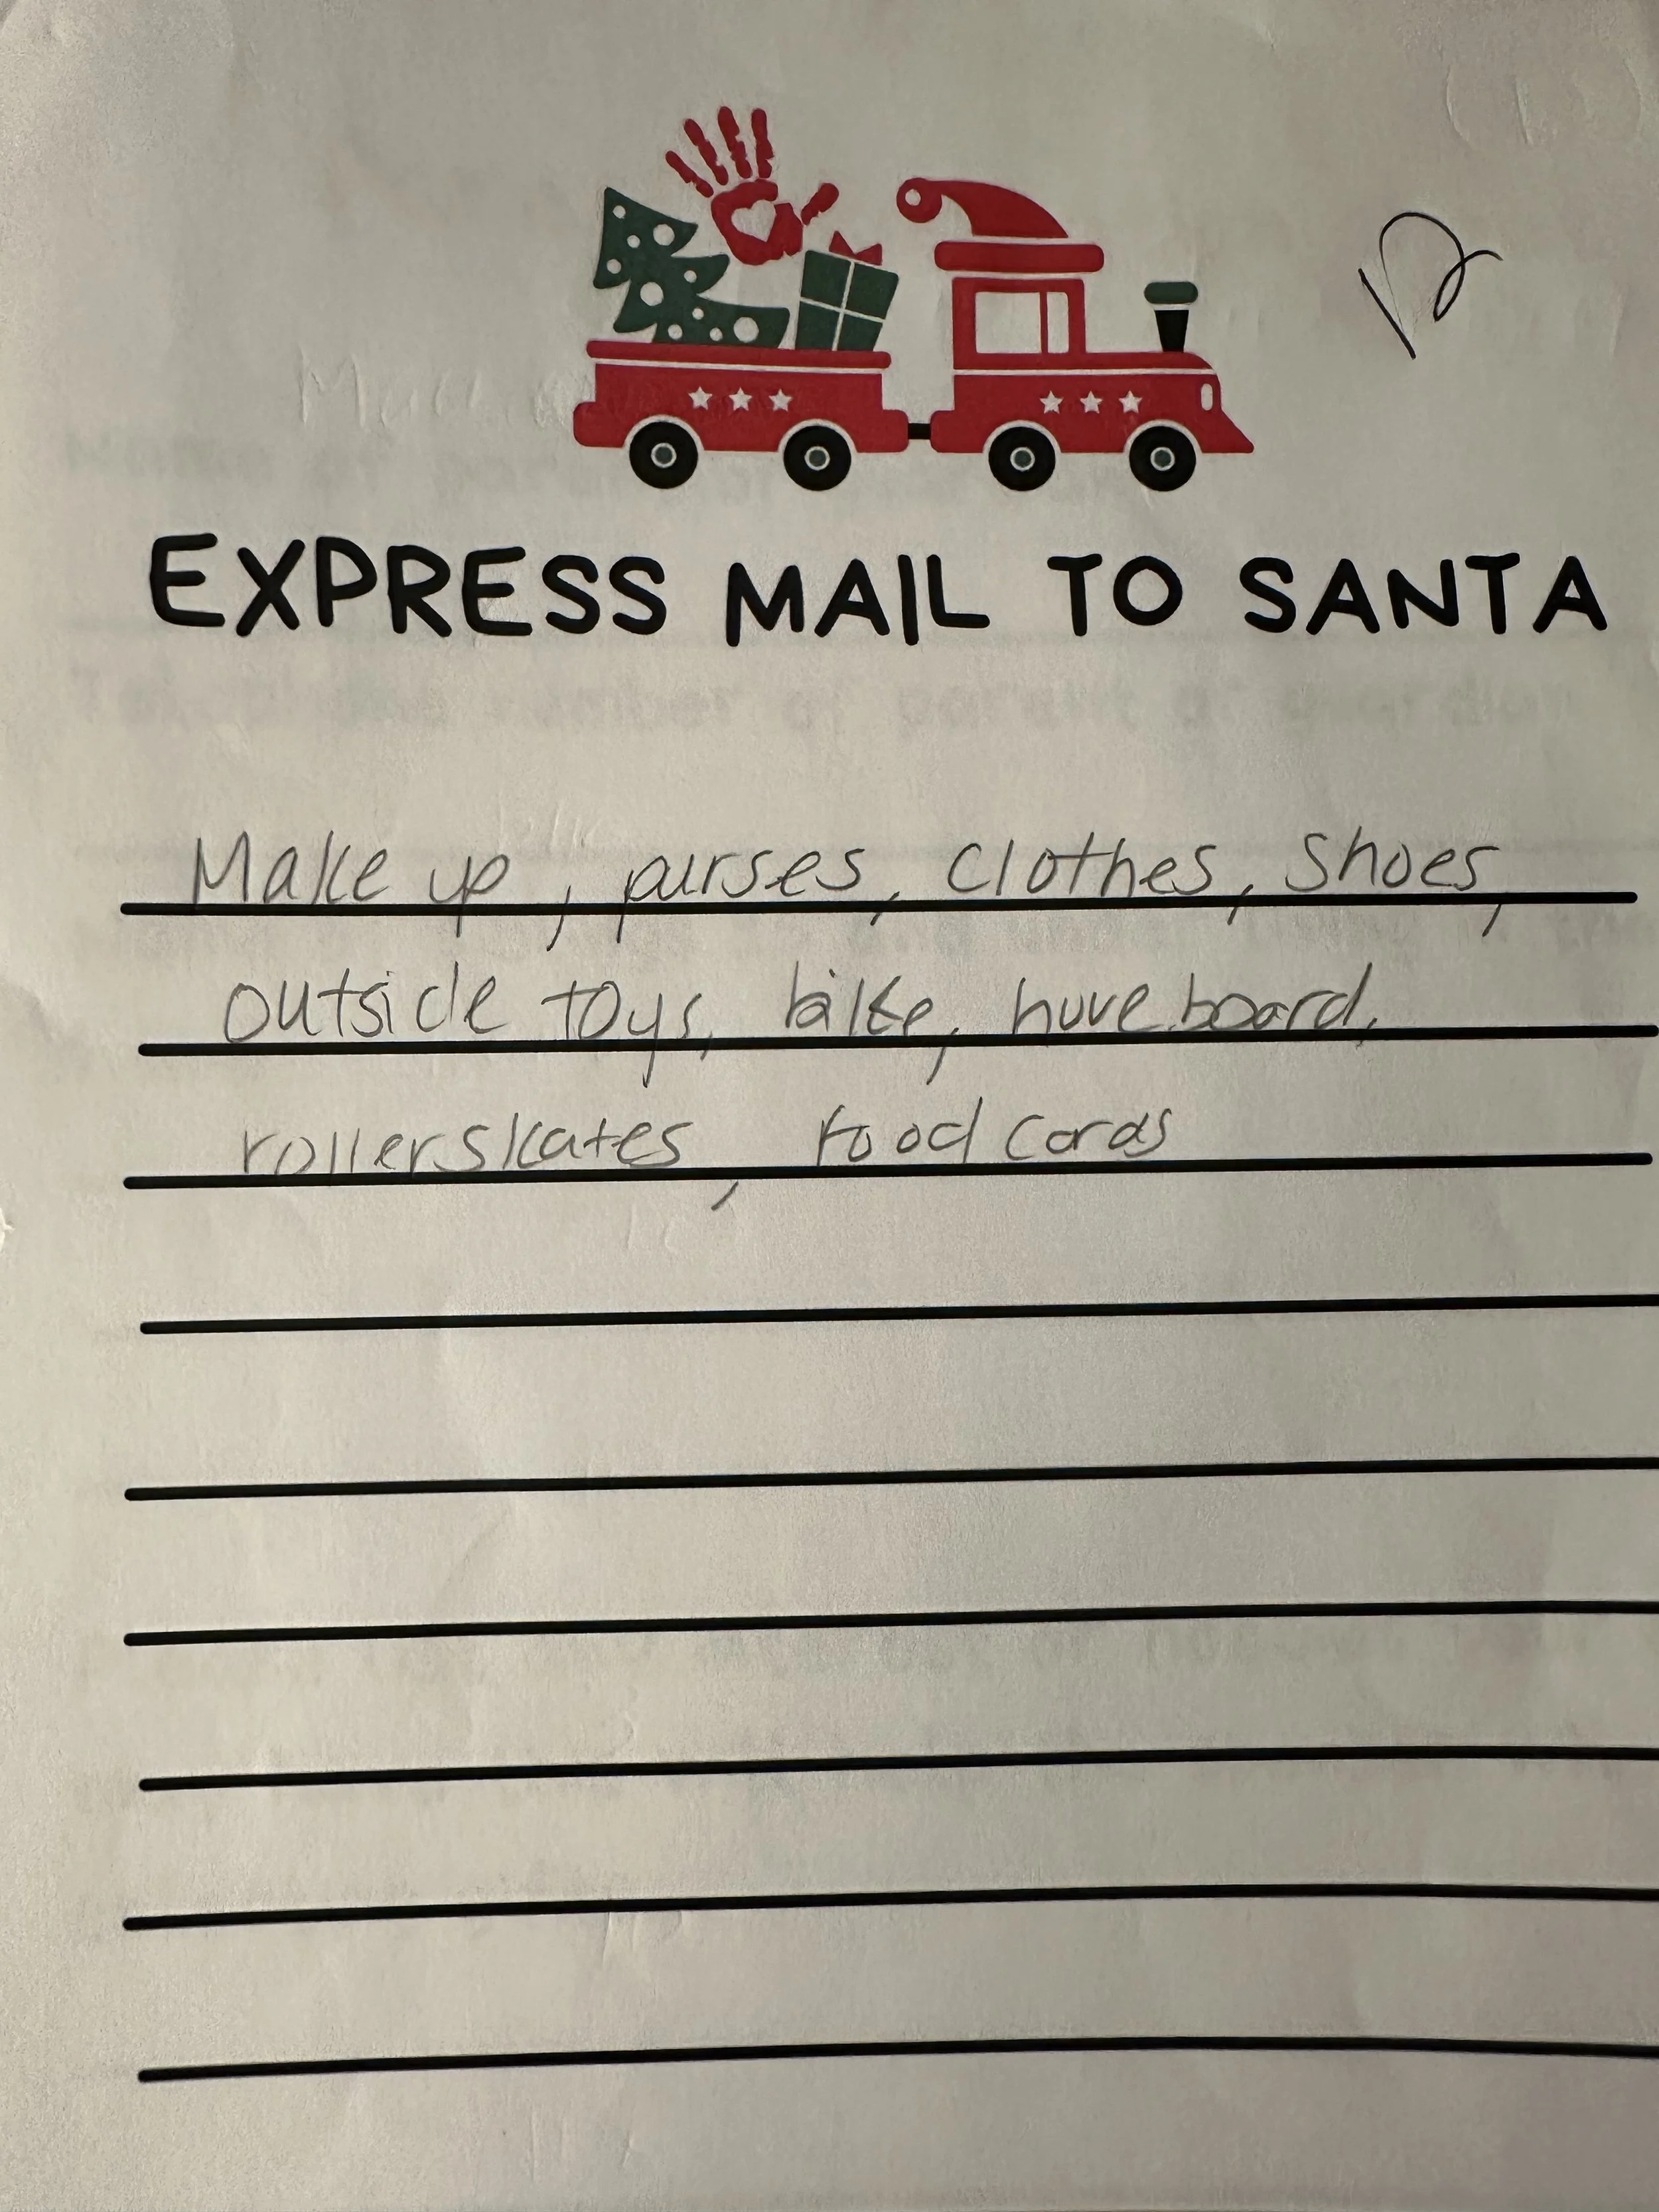 EXPRESS MAIL TO SANTA
Make up, purses, clothes, shoes,
outside toys, bike, hoveboard,
rollerskates, food cards